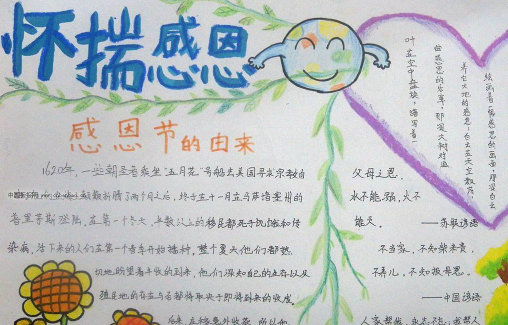 怀揣感恩
感恩节的由来
1620年,一些朝圣者乘坐"五月花"号船去美国寻求宗教自
颠簸折腾了两个月之后,终于在十一月在马萨诸塞州的
普里茅斯登陆,在第一个冬天,半数以上的移民都死于饥饿和传
染病,活下来的人们在第一个春季开始播种,整个夏天他们都热
切地盼望着丰收的到来,他们深知自己的生存以及
殖民地的存在与否都将取决于即将到来的收成。
后来,在
父母之恩,
水不能溺,火不
能灭。
——苏联谚语
不当家,不知柴米贵,
不养儿,不知报母恩。
——中国谚语
叶在空中盘旋,谱写着一
曲感恩的乐章,那是大树对滋
养它大地的感恩;白云在天空飘荡,
绘画着一幅感恩的画卷,那是白云